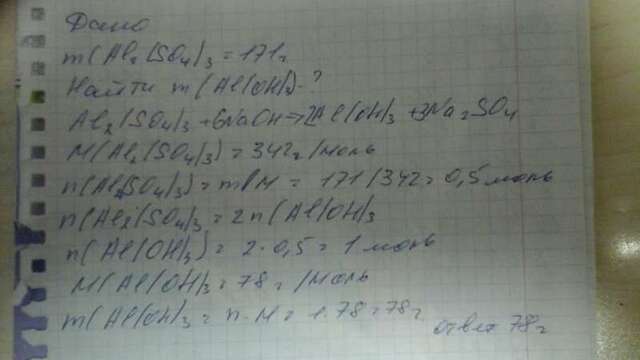 Дано
m(Al₂(SO₄)₃ = 171г
Найти m(Al(OH)₃)-?
Al₂(SO₄)₃ + 6NaOH → 2Al(OH)₃ + 3Na₂SO₄
M(Al₂(SO₄)₃) = 342г/моль
n(Al₂(SO₄)₃) = m/M = 171/342 = 0,5 моль
n(Al₂(SO₄)₃ = 2n(Al(OH)₃
n(Al(OH)₃) = 2·0,5 = 1 моль
M(Al(OH)₃ = 78г/моль
m(Al(OH)₃ = n·M = 1·78 = 78г ответ 78г